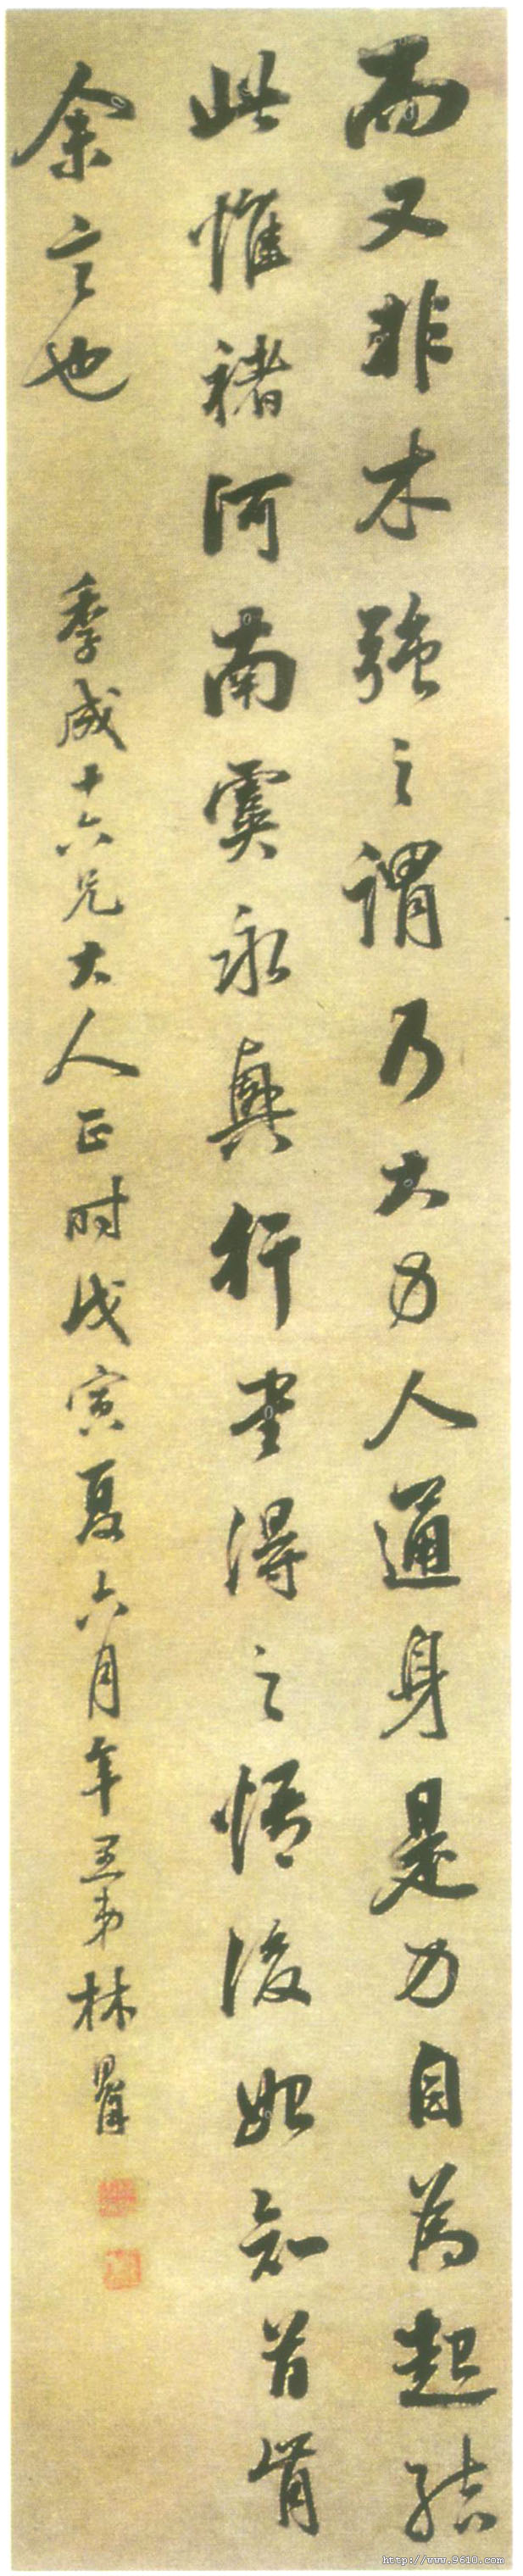 而又非木強之謂乃大力人通身是力自為起結
此惟褚河南虞永興行書得之悟後始知首肯
余言也
季成十六兄大人正時戊寅夏六月年弟林
http://www.9610.com